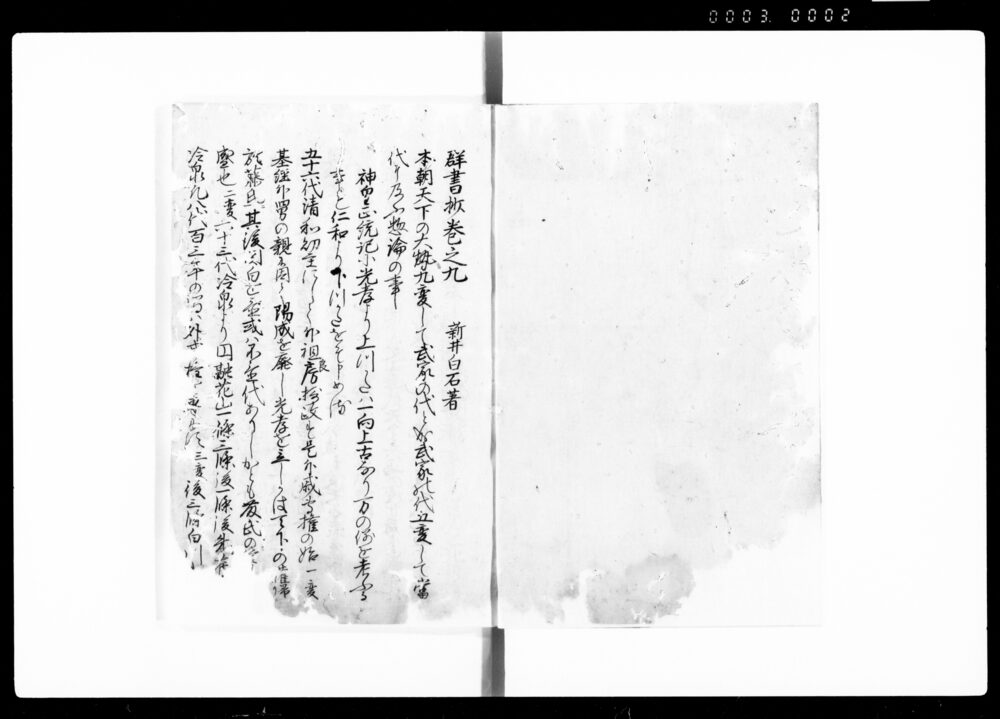 0003 0002
群書抜巻之九　新井白石著
本朝天下の大勢九変して武家の代となり武家の代五変して当
代に及ふ惣論の事
神皇正統記に光孝より上つかたハ一向上古なり万の例を考ふる
も仁和より下つかたをそ申める
五十六代清和幼主にして外祖良房摂政す是外戚専権の始一変
基経外舅の親に因て陽成を廃し光孝を立しかは天下の
於藤氏其後関白を置或ハ不置代ありしかとも藤氏の
二変六十三代冷泉より円融花山一條三條後一條後朱雀
冷泉凡八代百三年の間ハ外戚権を 三変後三條白河